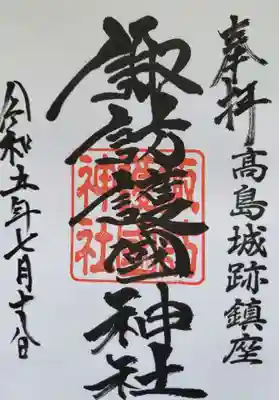 奉拝
高島城跡鎮座
諏訪護國神社
諏訪
護國
神社
令和五年七月十六日